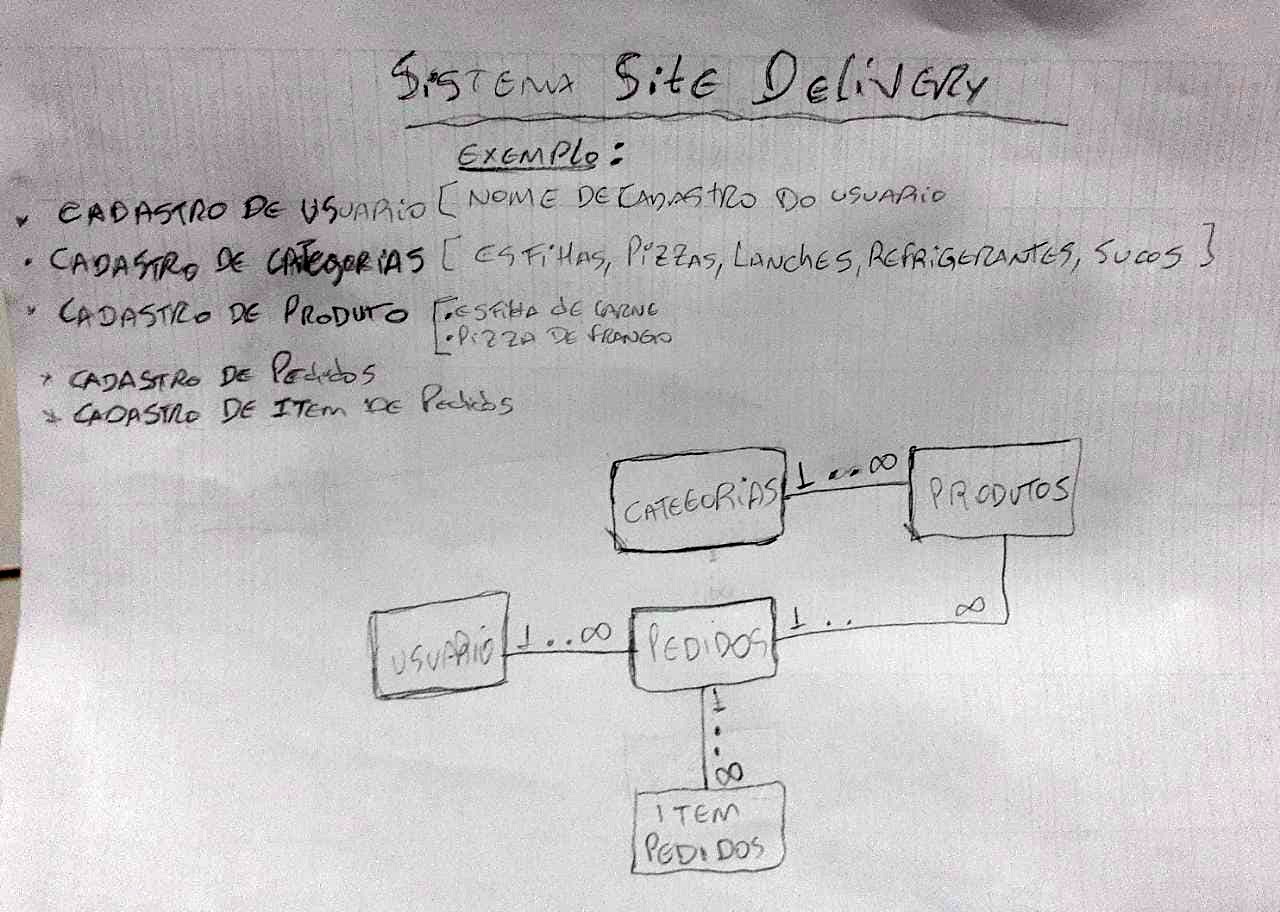 SISTEMA SitE DEliVERY
EXEMPLO:
CADASTRO DE USUARIO [ NOME DE CADASTRO DO USUARIO
• CADASTRO DE CATEgORIAS [ ESFIHAS, PIZZAS, LANCHES, REFRIGERANTES, SUCOS ]
* CADASTRO DE PRODUTO [ • ESFIHA DE CARNE
• PIZZA DE FRANGO
* CADASTRO DE PEdidos
* CADASTRO DE ITEM DE Pedidos
CATEGORIAS 1 .. ∞ PRODUTOS
USUARIO 1 .. ∞ PEDIDOS 1 .. ∞
1
..
∞
ITEM
PEDIDOS